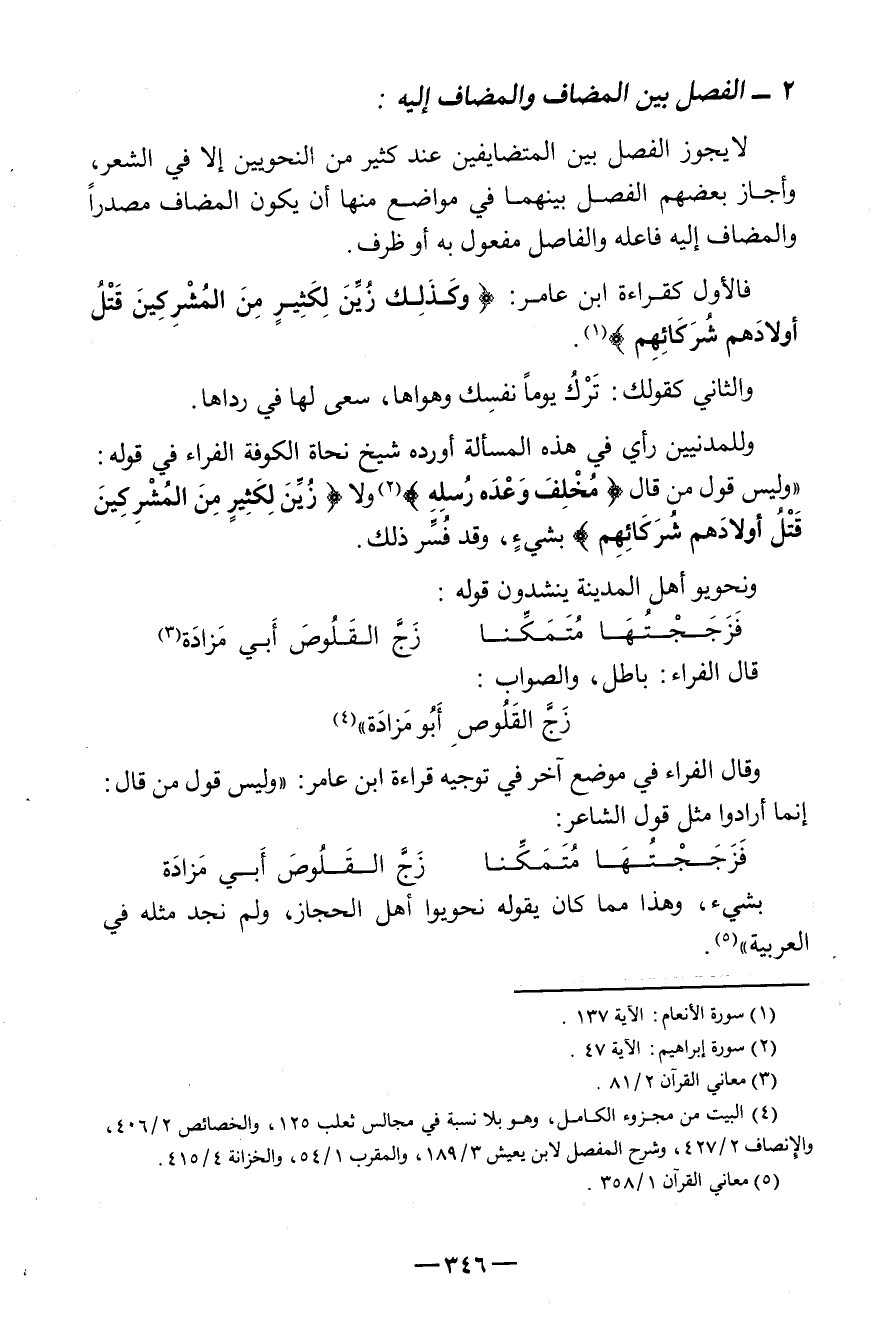 ٢ ــ الفصل بين المضاف والمضاف إليه :
لا يجوز الفصل بين المتضايفين عند كثير من النحويين إلا في الشعر،
وأجاز بعضهم الفصل بينهما في مواضع منها أن يكون المضاف مصدراً
والمضاف إليه فاعله والفاصل مفعول به أو ظرف.
فالأول كقراءة ابن عامر: ﴿ وكَذَلِك زُيِّنَ لِكَثِيرٍ مِنَ المُشْرِكِينَ قَتْلُ
أولادَهم شُرَكَائِهِم ﴾(١).
والثاني كقولك: تَرْكُ يوماً نفسِك وهواها، سعى لها في رداها.
وللمدنيين رأي في هذه المسألة أورده شيخ نحاة الكوفة الفراء في قوله:
«وليس قول من قال ﴿ مُخْلِفَ وَعْدَه رُسلِهِ ﴾(٢) ولا ﴿ زُيِّنَ لِكَثِيرٍ مِنَ المُشْرِكِينَ
قَتْلُ أولادَهم شُرَكَائِهِم ﴾ بشيءٍ، وقد فُسِّر ذلك.
ونحويو أهل المدينة ينشدون قوله :
فَزَجَجْتُهَا مُتَمَكِّنا زَجَّ القَلُوصَ أَبي مَزادَة(٣)
قال الفراء: باطل، والصواب :
زَجَّ القَلُوصِ أَبُو مَزادَة»(٤)
وقال الفراء في موضع آخر في توجيه قراءة ابن عامر: «وليس قول من قال:
إنما أرادوا مثل قول الشاعر:
فَزَجَجْتُهَا مُتَمَكِّنا زَجَّ القَلُوصَ أَبي مَزادَة
بشيء، وهذا مما كان يقوله نحويوا أهل الحجاز، ولم نجد مثله في
العربية»(٥).
(١) سورة الأنعام: الآية ١٣٧ .
(٢) سورة إبراهيم: الآية ٤٧ .
(٣) معاني القرآن ٨١/٢ .
(٤) البيت من مجزوء الكامل، وهو بلا نسبة في مجالس ثعلب ١٢٥، والخصائص ٤٠٦/٢،
والإنصاف ٤٢٧/٢، وشرح المفصل لابن يعيش ١٨٩/٣، والمقرب ٥٤/١، والخزانة ٤١٥/٤.
(٥) معاني القرآن ٣٥٨/١ .
— ٣٤٦ —